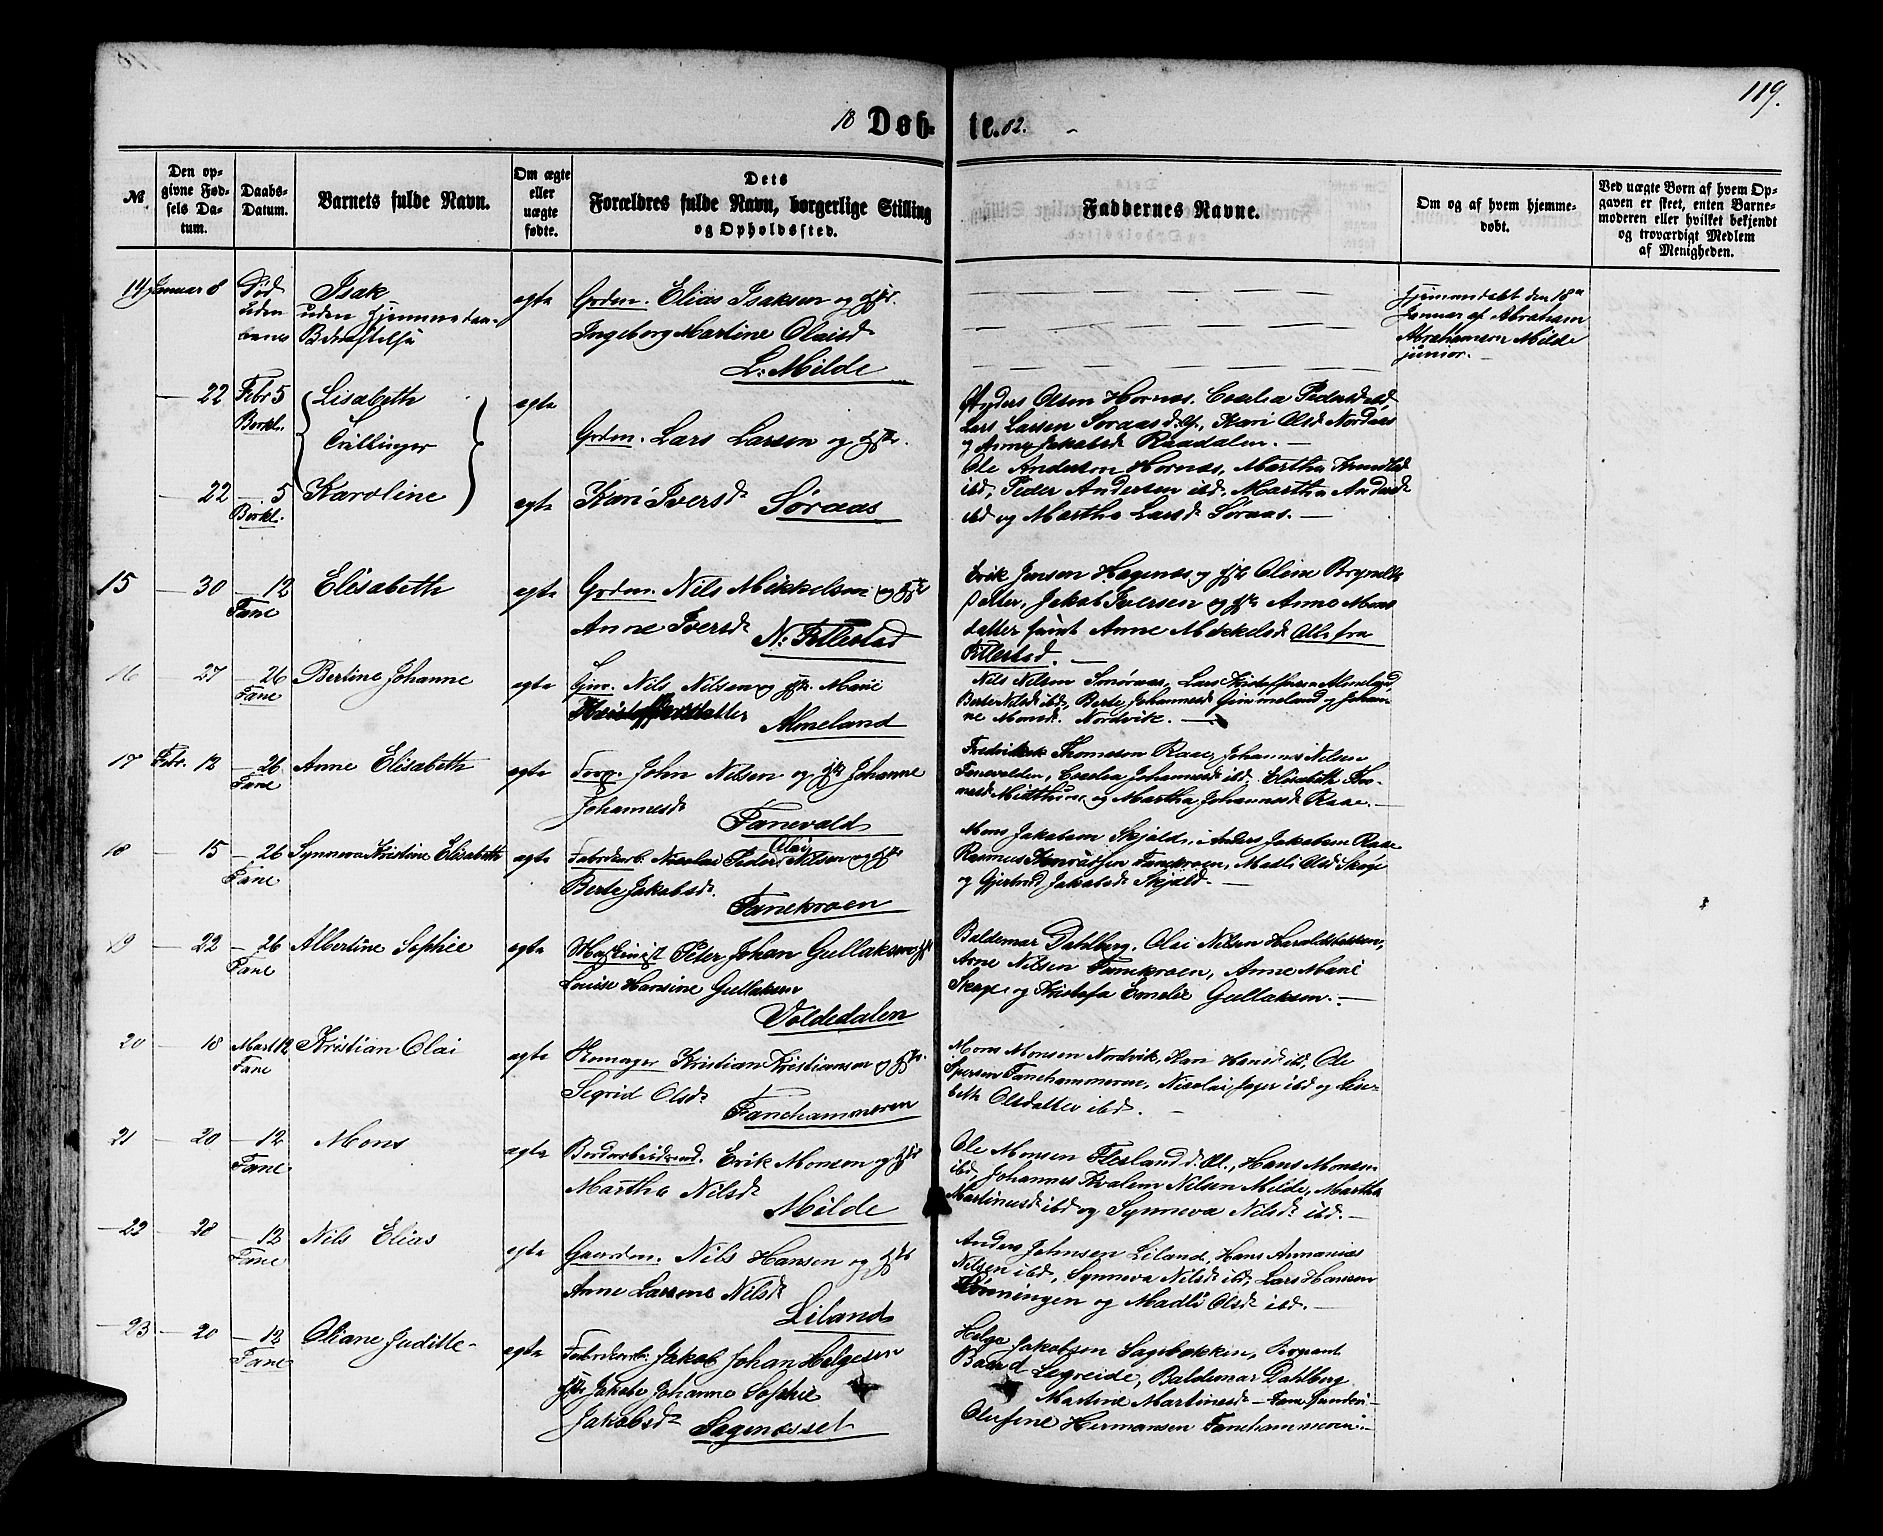 119.
18 Døb-te. 62.
№
Den op-
givne Fød-
sels Da-
tum.
Daabs-
Datum.
Barnets fulde Navn.
Om ægte
eller
uægte
fødte.
Dets
Forældres fulde Navn, borgerlige Stilling
og Opholdssted.
Faddernes Navne.
Om og af hvem hjemme-
døbt.
Ved uægte Børn af hvem Op-
gaven er skeet, enten Barne-
moderen eller hvilket bekjendt
og troværdigt Medlem
af Menigheden.
14 Januar 8 Død Isak egte Grdm. Elias Isaksen og Hst.
uden uden Hjemmedaabs
Bekræftelse
Ingeborg Martine Olaisd
L. Milde
Hjemmedøbt den 18de
Januar af Abraham
Abrahamsen Milde
junior.
22 Febr 5 Lisabeth egte
Birkl. Tvillinger Grdm. Lars Larsen og Hst.
22 5 Karoline egte Kari Iversd. Søraas
Birkl.
Anders Olsen Hornæs, Cecelia Pedersd ibd,
Lars Larsen Søraas d. y., Kari Olsd Nordaas
og Anne Jakobsd Raadalen.
Ole Andersen Hornæs, Martha
ibd, Peder Andersen ibd, Martha Andersd
ibd og Martha Larsd Søraas.
15 30 12 Elisabeth egte Grdm. Nils Mikkelsen og Hst
Fane Anne Iversd. N. Titlestad
Erik Jensen Hagenæs og Hst Oline Brynilds
datter, Jakob Iversen og Hst Anne Mons
datter samt Anne Mikkelsd Alle fra
Titlestad.
16 27 26 Bertine Johanne egte Nils Nilsen og Hst. Marie
Fane Kristoffersdatter Almeland
Nils Nilsen Smøraas, Lars Kristoffersen Almeland,
Berte Nilsd ibd, Berte Johannesd Gimmeland og Johan-
ne Monsd. Nordvik.
17 Febr. 12 26 Anne Elisabeth egte Forp. John Nilsen og Hst Johanne
Fane Johannesd. Fanevold
Fredrik Thomsson Raae, Johannes Nilsen
Fanevolden, Cecelia Johannesd ibd, Elisabeth
Midthun og Martha Johannesd Raae.
18 15 26 Synneva Kristine Elisabeth egte Fabrikarb. Nicolai Peder Olai Nilsen og Hst
Fane Berte Jakobsd. Fanekroen
Mons Jakobsen Skjold, Anders Jakobsen Raae
Rasmus Fanekroen, Madli Olsd Skage
og Gjertrud Jakobsd Skjold.
19 22 26 Albertine Sophie egte Maskinist Peter Johan Gullaksen og Hst
Fane Louise Hansine Gullaksen
Voldedalen
Baldemar Dahlberg, Olai Nilsen Haraldsbakken,
Arne Nilsen Fanekroen, Anne Marie
Skage og Kristofa Emelie Gullaksen.
20 18 Mart 12 Kristian Olai egte Kristian Kristiansen og Hst.
Fane Sigrid Olsd. Fanehammeren
Mons Monsen Nordvik, Kari Hansd ibd, Ole
Fanehammeren, Nicolai Jager ibd og Lisa-
beth Olsdatter ibd.
21 20 12 Mons egte Bordarbeidsmd. Erik Monsen og Hst
Fane Martha Nilsd. Milde
Ole Monsen Flesland d. æl., Hans Monsen
ibd, Johannes Kvalem Nilsen Milde, Martha
Martinusd ibd og Synneva Nilsd ibd.
22 28 12 Nils Elias egte Gaardm. Nils Hansen og Hst
Fane Anne Larsine Nilsd.
Liland
Anders Johnsen Liland, Hans Annanias
Nilsen ibd, Synneva Nilsd ibd, Lars Hansen
og Madli Olsd ibd.
23 20 12 Oliane Juditte egte Fabrikarb. Jakob Johan Helgesen
Fane Hst. Jakobe Johanne Sophie
Jakobsd. Sagenæsset
Helge Jakobsen Sagebakken, Sergeant
Baard Legreide, Baldemar Dahlberg
Martine Martinusd
Olufine Hermansen Fanehammeren.